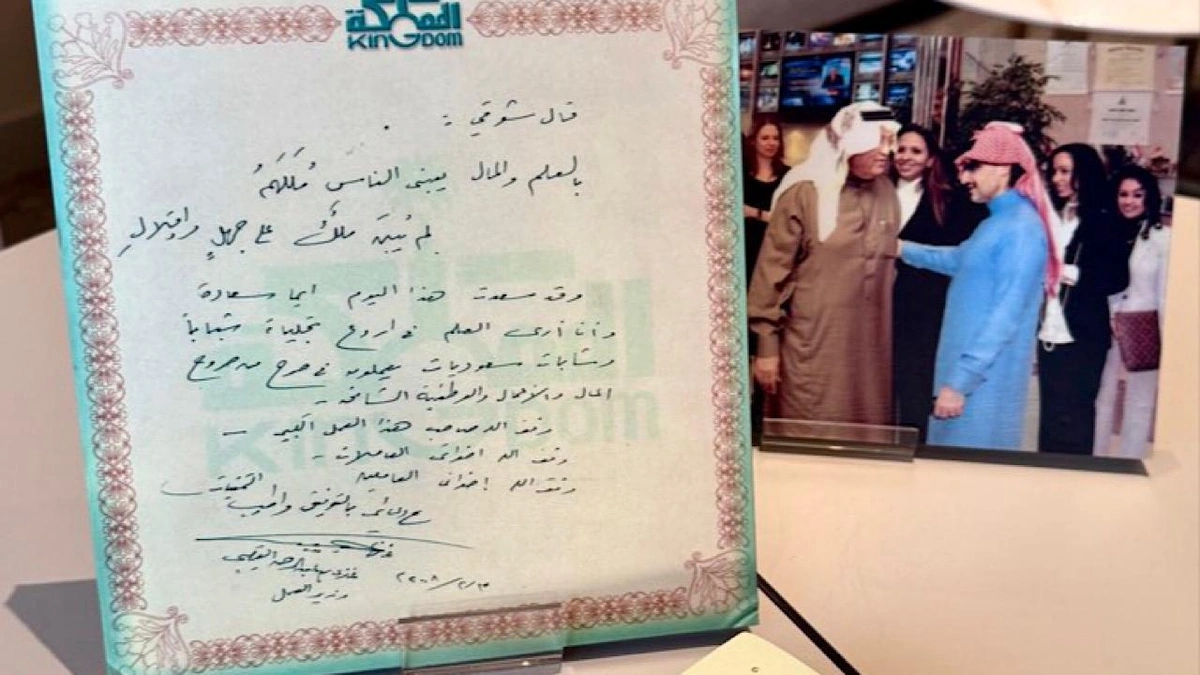 المملكة
KINGDOM
قال شوقي :
بالعلم والمال يبني الناسُ مُلكَهُمُ
لم يُبنَ ملكٌ على جهلٍ وإقلالِ
وقد سعدت هذا اليوم ايما سعادة
وأنا أرى العلم في اروع تجلياته شباباً
وشابات سعوديات يعملون في صرح من صروح
المال والاعمال والوطنية الشامخة -
وفق الله صاحب هذا العمل الكبير -
وفق الله اخواتي العاملات -
وفق الله إخواني العاملين
مع دعائي بالتوفيق واطيب التمنيات
غازي بن عبدالرحمن القصيبي
وزير العمل